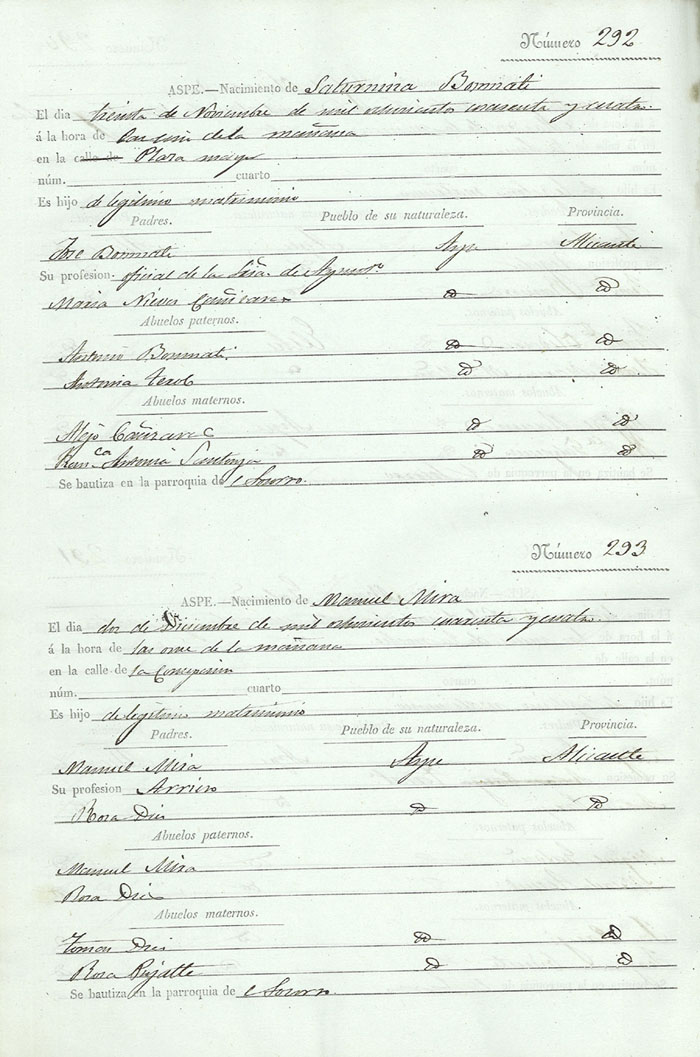 Número 292
ASPE.—Nacimiento de Saturnina Bonmati
El dia treinta de Noviembre de mil ochocientos cuarenta y cuatro.
á la hora de de la mañana
en la calle de Plaza mayor
núm. cuarto
Es hijo de legitimo matrimonio
Padres. Pueblo de su naturaleza. Provincia.
José Bonmati Aspe Alicante
Su profesion oficial de la de
Maria Nieves Cañizares
Abuelos paternos.
Antonio Bonmati
Antonia Terol
Abuelos maternos.
Alejo Cañizares
Antonia Santonja
Se bautiza en la parroquia de Socorro.
Número 293
ASPE.—Nacimiento de Manuel Mira
El dia dos de Diciembre de mil ochocientos cuarenta y cuatro.
á la hora de las once de la mañana
en la calle de la Concepcion
núm. cuarto
Es hijo de legitimo matrimonio
Padres. Pueblo de su naturaleza. Provincia.
Manuel Mira Aspe Alicante
Su profesion Arriero
Rosa Dies
Abuelos paternos.
Manuel Mira
Rosa Dies
Abuelos maternos.
Tomas Dies
Rosa
Se bautiza en la parroquia de Socorro